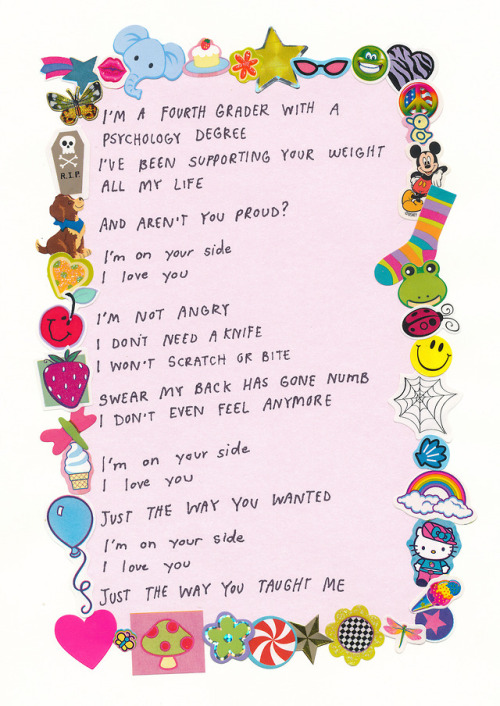 I'M A FOURTH GRADER WITH A
PSYCHOLOGY DEGREE
I'VE BEEN SUPPORTING YOUR WEIGHT
ALL MY LIFE
AND AREN'T YOU PROUD?
I'm on your side
I love you
I'M NOT ANGRY
I DON'T NEED A KNIFE
I WON'T SCRATCH OR BITE
SWEAR MY BACK HAS GONE NUMB
I DON'T EVEN FEEL ANYMORE
I'm on your side
I love you
JUST THE WAY YOU WANTED
I'm on your side
I love you
JUST THE WAY YOU TAUGHT ME
R.I.P.